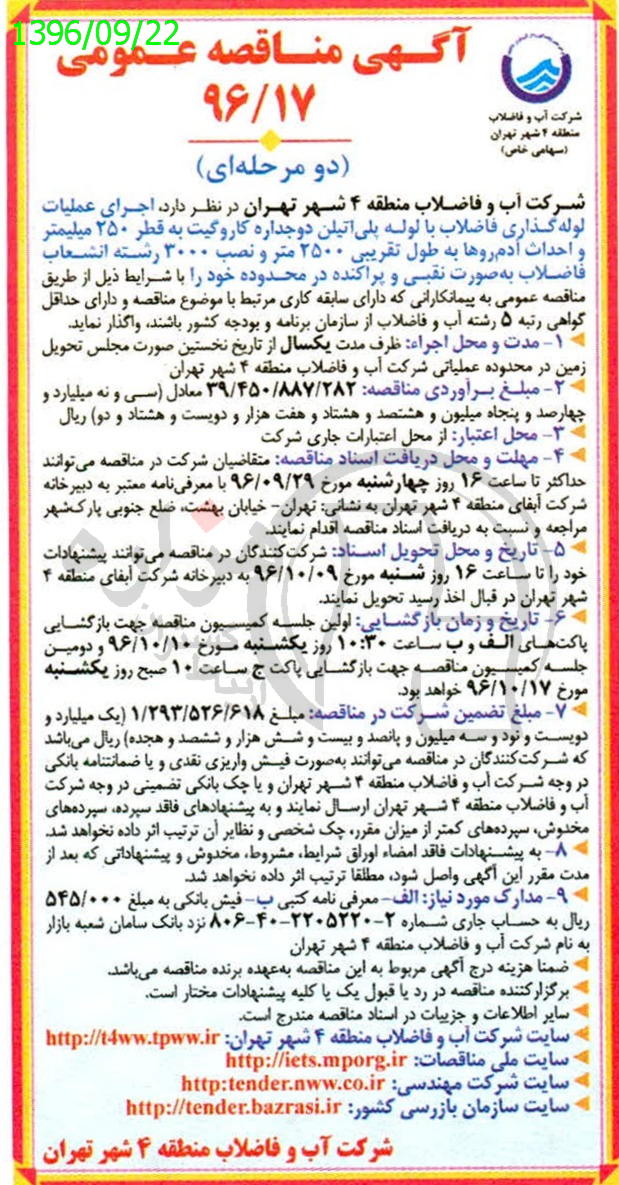 1396/09/22
آگهی مناقصه عمومی
۹۶/۱۷
(دو مرحله‌ای)
شرکت آب و فاضلاب
منطقه ۴ شهر تهران
(سهامی خاص)
شرکت آب و فاضلاب منطقه ۴ شهر تهران در نظر دارد، اجرای عملیات
لوله‌گذاری فاضلاب با لوله پلی‌اتیلن دوجداره کاروگیت به قطر ۲۵۰ میلیمتر
و احداث آدم‌روها به طول تقریبی ۲۵۰۰ متر و نصب ۳۰۰۰ رشته انشعاب
فاضلاب به‌صورت نقبی و پراکنده در محدوده خود را با شرایط ذیل از طریق
مناقصه عمومی به پیمانکارانی که دارای سابقه کاری مرتبط با موضوع مناقصه و دارای حداقل
گواهی رتبه ۵ رشته آب و فاضلاب از سازمان برنامه و بودجه کشور باشند، واگذار نماید.
۱- مدت و محل اجراء: ظرف مدت یکسال از تاریخ نخستین صورت مجلس تحویل
زمین در محدوده عملیاتی شرکت آب و فاضلاب منطقه ۴ شهر تهران
۲- مبلغ برآوردی مناقصه: ۳۹/۴۵۰/۸۸۷/۲۸۲ معادل (سی و نه میلیارد و
چهارصد و پنجاه میلیون و هشتصد و هشتاد و هفت هزار و دویست و هشتاد و دو) ریال
۳- محل اعتبار: از محل اعتبارات جاری شرکت
۴- مهلت و محل دریافت اسناد مناقصه: متقاضیان شرکت در مناقصه می‌توانند
حداکثر تا ساعت ۱۶ روز چهارشنبه مورخ ۹۶/۰۹/۲۹ با معرفی‌نامه معتبر به دبیرخانه
شرکت آبفای منطقه ۴ شهر تهران به نشانی: تهران- خیابان بهشت، ضلع جنوبی پارک‌شهر
مراجعه و نسبت به دریافت اسناد مناقصه اقدام نمایند.
۵- تاریخ و محل تحویل اسناد: شرکت‌کنندگان در مناقصه می‌توانند پیشنهادات
خود را تا ساعت ۱۶ روز شنبه مورخ ۹۶/۱۰/۰۹ به دبیرخانه شرکت آبفای منطقه ۴
شهر تهران در قبال اخذ رسید تحویل نمایند.
۶- تاریخ و زمان بازگشایی: اولین جلسه کمیسیون مناقصه جهت بازگشایی
پاکت‌های الف و ب ساعت ۱۰:۳۰ روز یکشنبه مورخ ۹۶/۱۰/۱۰ و دومین
جلسه کمیسیون مناقصه جهت بازگشایی پاکت ج ساعت ۱۰ صبح روز یکشنبه
مورخ ۹۶/۱۰/۱۷ خواهد بود.
۷- مبلغ تضمین شرکت در مناقصه: مبلغ ۱/۲۹۳/۵۲۶/۶۱۸ (یک میلیارد و
دویست و نود و سه میلیون و پانصد و بیست و شش هزار و ششصد و هجده) ریال می‌باشد
که شرکت‌کنندگان در مناقصه می‌توانند به‌صورت فیش واریزی نقدی و یا ضمانتنامه بانکی
در وجه شرکت آب و فاضلاب منطقه ۴ شهر تهران و یا چک بانکی تضمینی در وجه شرکت
آب و فاضلاب منطقه ۴ شهر تهران ارسال نمایند و به پیشنهادهای فاقد سپرده، سپرده‌های
مخدوش، سپرده‌های کمتر از میزان مقرر، چک شخصی و نظایر آن ترتیب اثر داده نخواهد شد.
۸- به پیشنهادات فاقد امضاء اوراق شرایط، مشروط، مخدوش و پیشنهاداتی که بعد از
مدت مقرر این آگهی واصل شود، مطلقا ترتیب اثر داده نخواهد شد.
۹- مدارک مورد نیاز: الف- معرفی نامه کتبی ب- فیش بانکی به مبلغ ۵۴۵/۰۰۰
ریال به حساب جاری شماره ۲-۲۲۰۵۲۲۰-۴۰-۸۰۶ نزد بانک سامان شعبه بازار
به نام شرکت آب و فاضلاب منطقه ۴ شهر تهران
ضمنا هزینه درج آگهی مربوط به این مناقصه به‌عهده برنده مناقصه می‌باشد.
برگزارکننده مناقصه در رد یا قبول یک یا کلیه پیشنهادات مختار است.
سایر اطلاعات و جزییات در اسناد مناقصه مندرج است.
سایت شرکت آب و فاضلاب منطقه ۴ شهر تهران: http://t4ww.tpww.ir
سایت ملی مناقصات: http://iets.mporg.ir
سایت شرکت مهندسی: http:tender.nww.co.ir
سایت سازمان بازرسی کشور: http://tender.bazrasi.ir
شرکت آب و فاضلاب منطقه ۴ شهر تهران